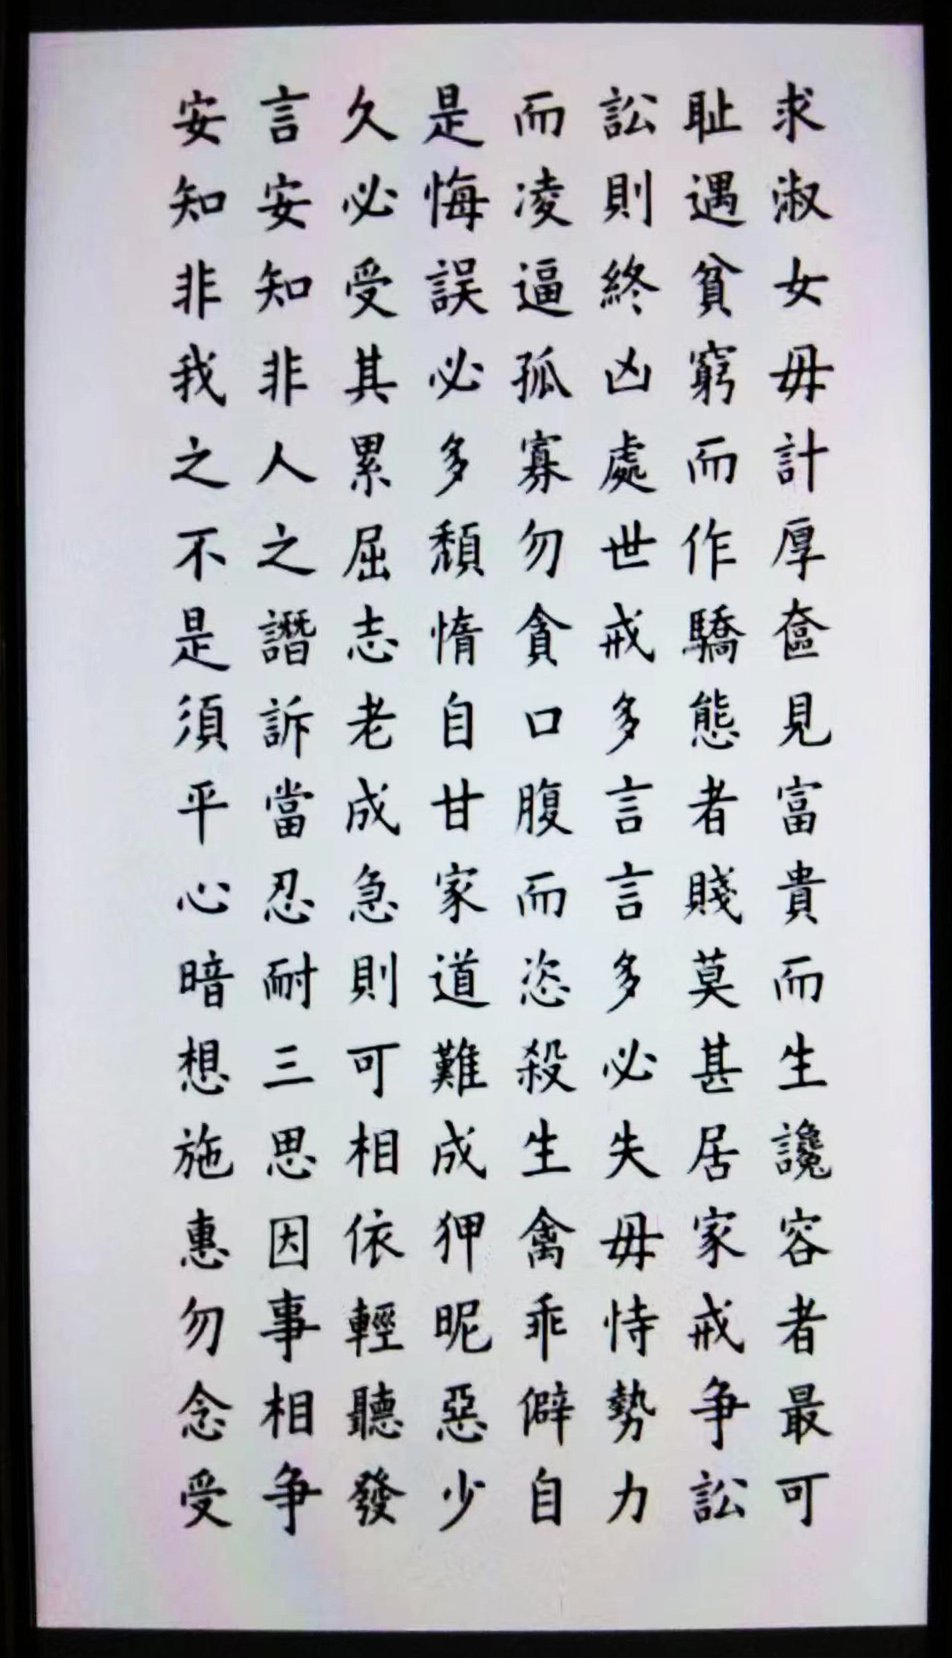 求淑女毋計厚奩見富貴而生讒容者最可
耻遇貧窮而作驕態者賤莫甚居家戒争訟
訟則終凶處世戒多言言多必失毋恃勢力
而凌逼孤寡勿貪口腹而恣殺生禽乖僻自
是悔誤必多頹惰自甘家道難成狎昵惡少
久必受其累屈志老成急則可相依輕聽發
言安知非人之譖訴當忍耐三思因事相争
安知非我之不是須平心暗想施惠勿念受